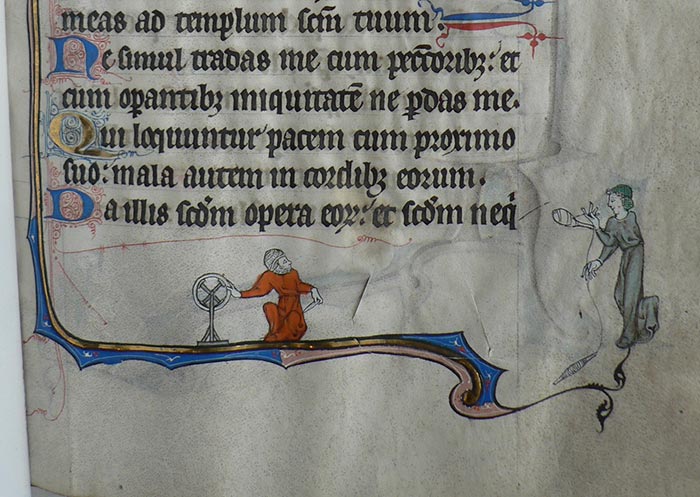 meas ad templum scm̄ tuum.
Ne simul tradas me cum pecc̄oribꝫ: et
cum operantibꝫ iniquitatē ne ꝑdas me.
Qui loquuntur pacem cum proximo
suo: mala autem in cordibꝫ eorum.
Da illis scd̄m opera eoꝝ: et scd̄m neq̇